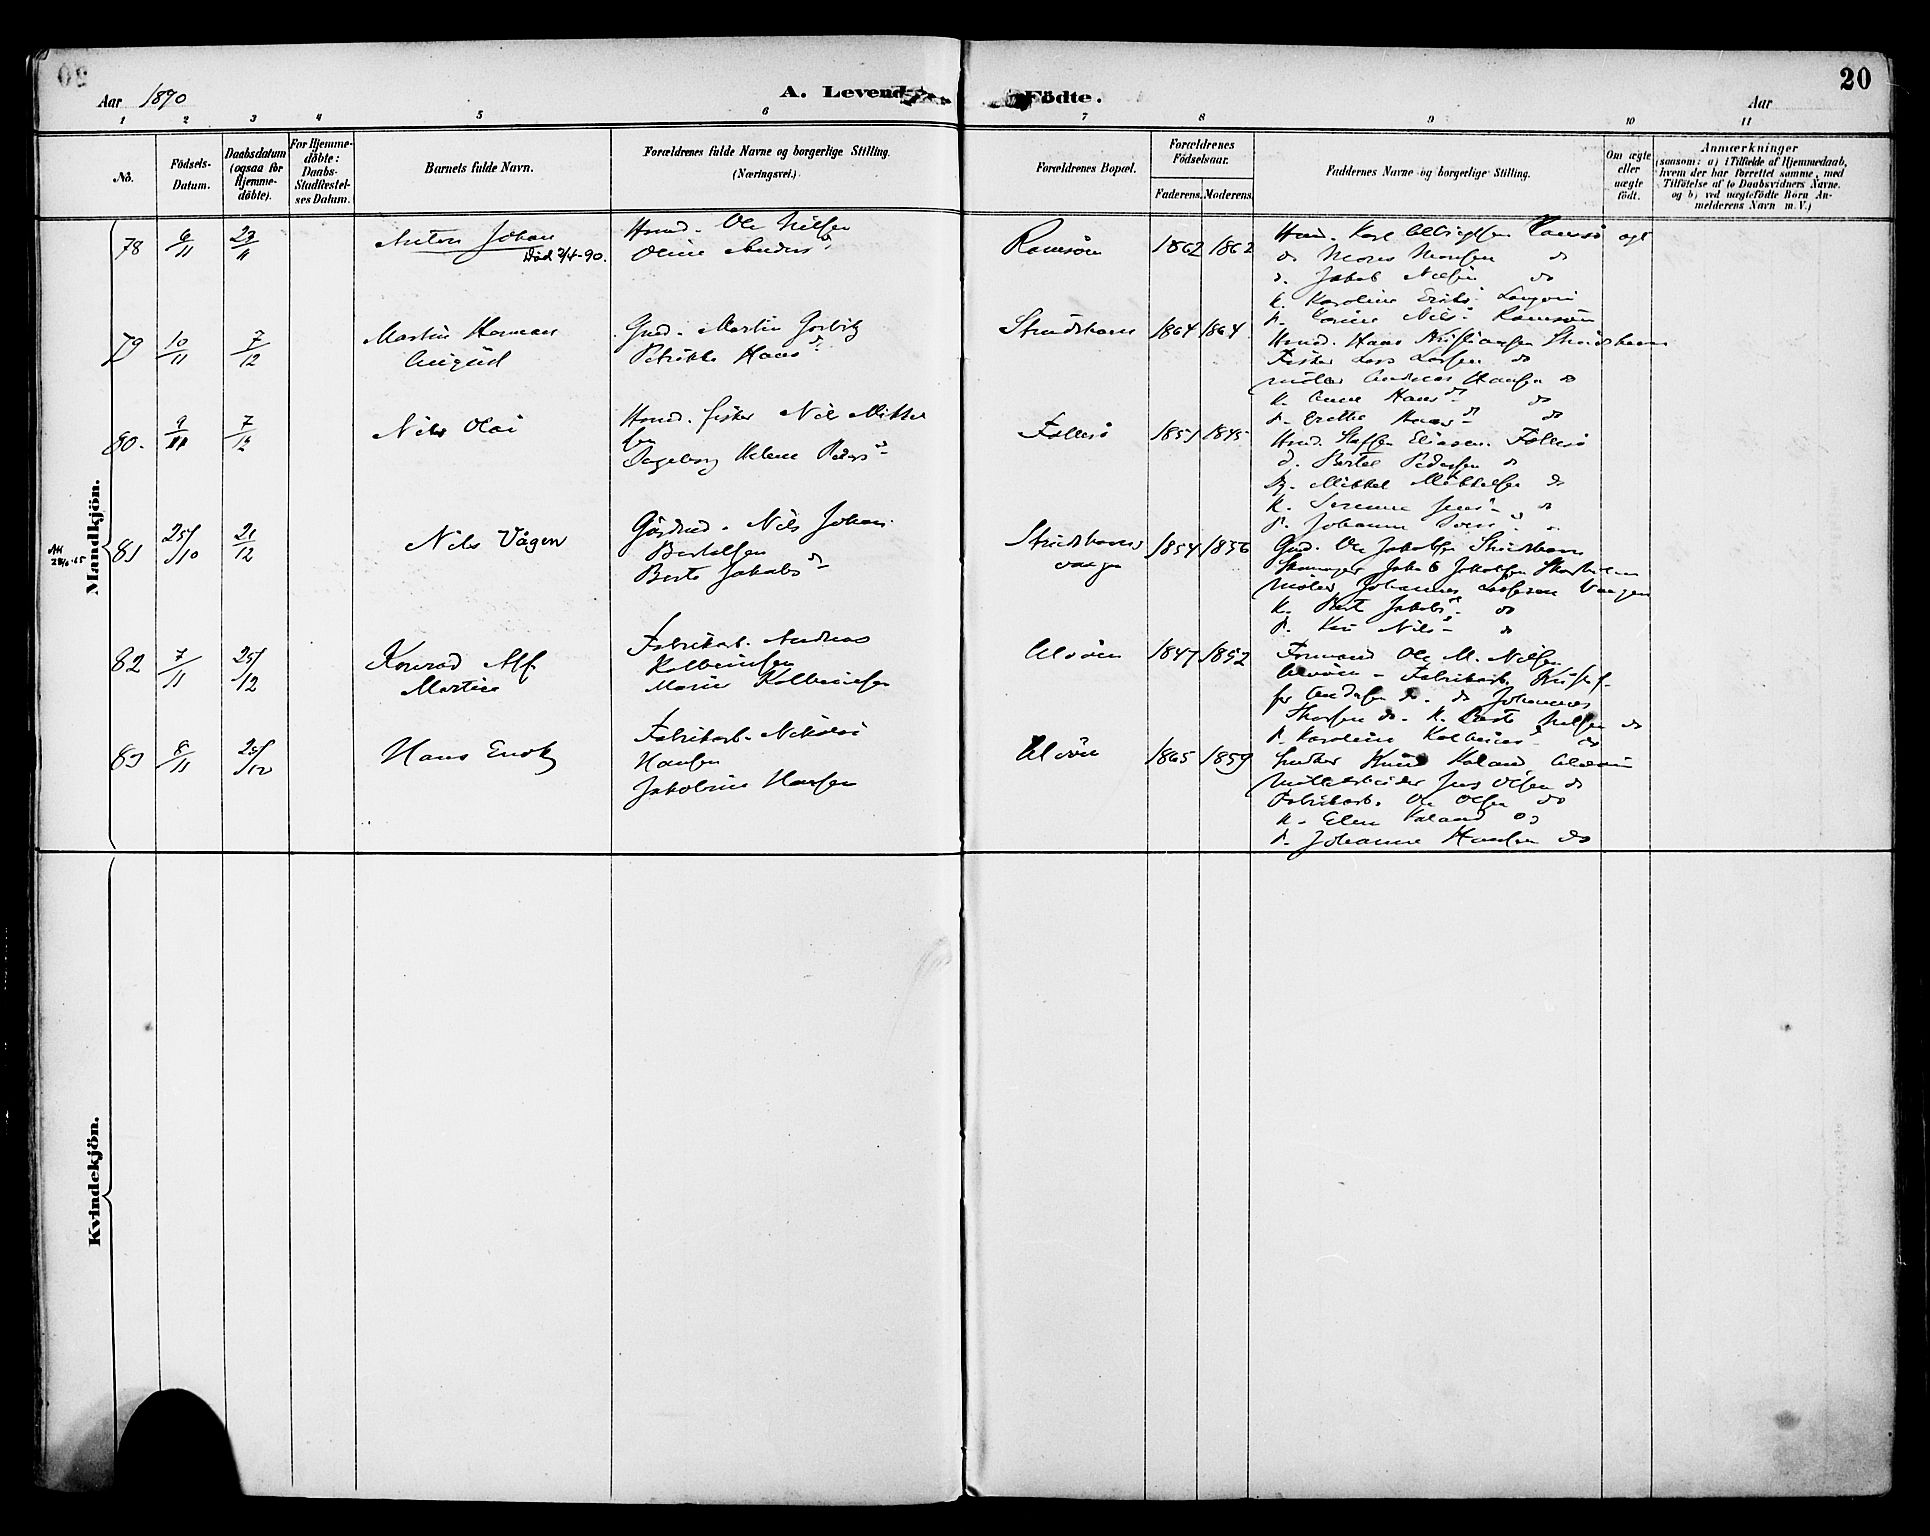 20
Aar 1890
A. Levende
Födte.
Aar
1 2 3 4 5 6 7 8 9 10 11
No.
Födsels-
Datum.
Daabsdatum
(ogsaa for
Hjemme-
döbte).
For Hjemme-
döbte:
Daabs-
Stadfestel-
ses Datum.
Barnets fulde Navn.
Forældrenes fulde Navne og borgerlige Stilling.
(Næringsvei.)
Forældrenes Bopæl.
Forældrenes
Födselsaar.
Faderens. Moderens.
Faddernes Navne og borgerlige Stilling.
Om ægte
eller
uægte
födt.
Anmærkninger
(saasom: a) i Tilfælde af Hjemmedaab,
hvem der har forrettet samme, med
Tilföielse af to Daabsvidners Navne.
og b) ved uægtefödte Börn An-
melderens Navn m. V.)
Mandkjön.
78 6/11 23/11
Anton Johan
Död 2/4-90.
Hmd. Ole Nilsen
Oline Andersd
Ramsöen
1862 1862
Hmd. Karl Ramsö ægt
do Mons Monsen do
d. Jakob Nilsen do
K. Karoline Eriks.
P. Nils. Ramsöen
79 10/11 7/12
Martin Herman
August
Gmd. Martin Gorbitz
Petrikke Hansd
Strudshavn
1864 1864
Hmd. Hans Kristiansen Strudshavn
Fisker Lars Larsen do
Andreas Hansen do
K. Anne Hansd do
P. Hansd do
80. 9/11 7/12
Nils Olai
Hmd. fisker Nils Mikkel
sen
Ingeborg Helene Pedersd
Follesö
1851 1845
Hmd. Steffen Eliasen Follesö
d. Bertel Pedersen do
Mikkel Mikkelsen do
K. do
P. Johanne
81 25/10 21/12
Nils Vågen
Gårdmd. Nils Johan
Bertelsen
Berte Jakobsd
Strudshavns
vaagen
1854 1856
Gmd. Ole Jakobsen Strudshavn
Skomager Jakob Jakobsen
Johannes Vaagen
K. Berte Jakobsd do
P. Kari Nilsd do
82 7/11 25/12
Konrad Alf
Martin
Fabrikarb. Andreas
Kolbeinsen
Marie Kolbeinsen
Alvöen
1847 1852
Formand Ole M. Nilsen
Alvöen - Fabrikarb. Kristof-
fer do. do Johannes
do. K. Berte Nilsen do
P. Karoline Kolbeins. do
83 8/11 25/12
Hans Enok
Fabrikarb. Nikolai
Hansen
Jakobine Hansen
Alvöen
1865 1859
Snedker Knud Kaland Alvöen
Möllearbeider Jens Olsen do
Fabrikarb. Ole Olsen do
K. Elen Kaland do
P. Johanne Hansen do
Kvindekjön.